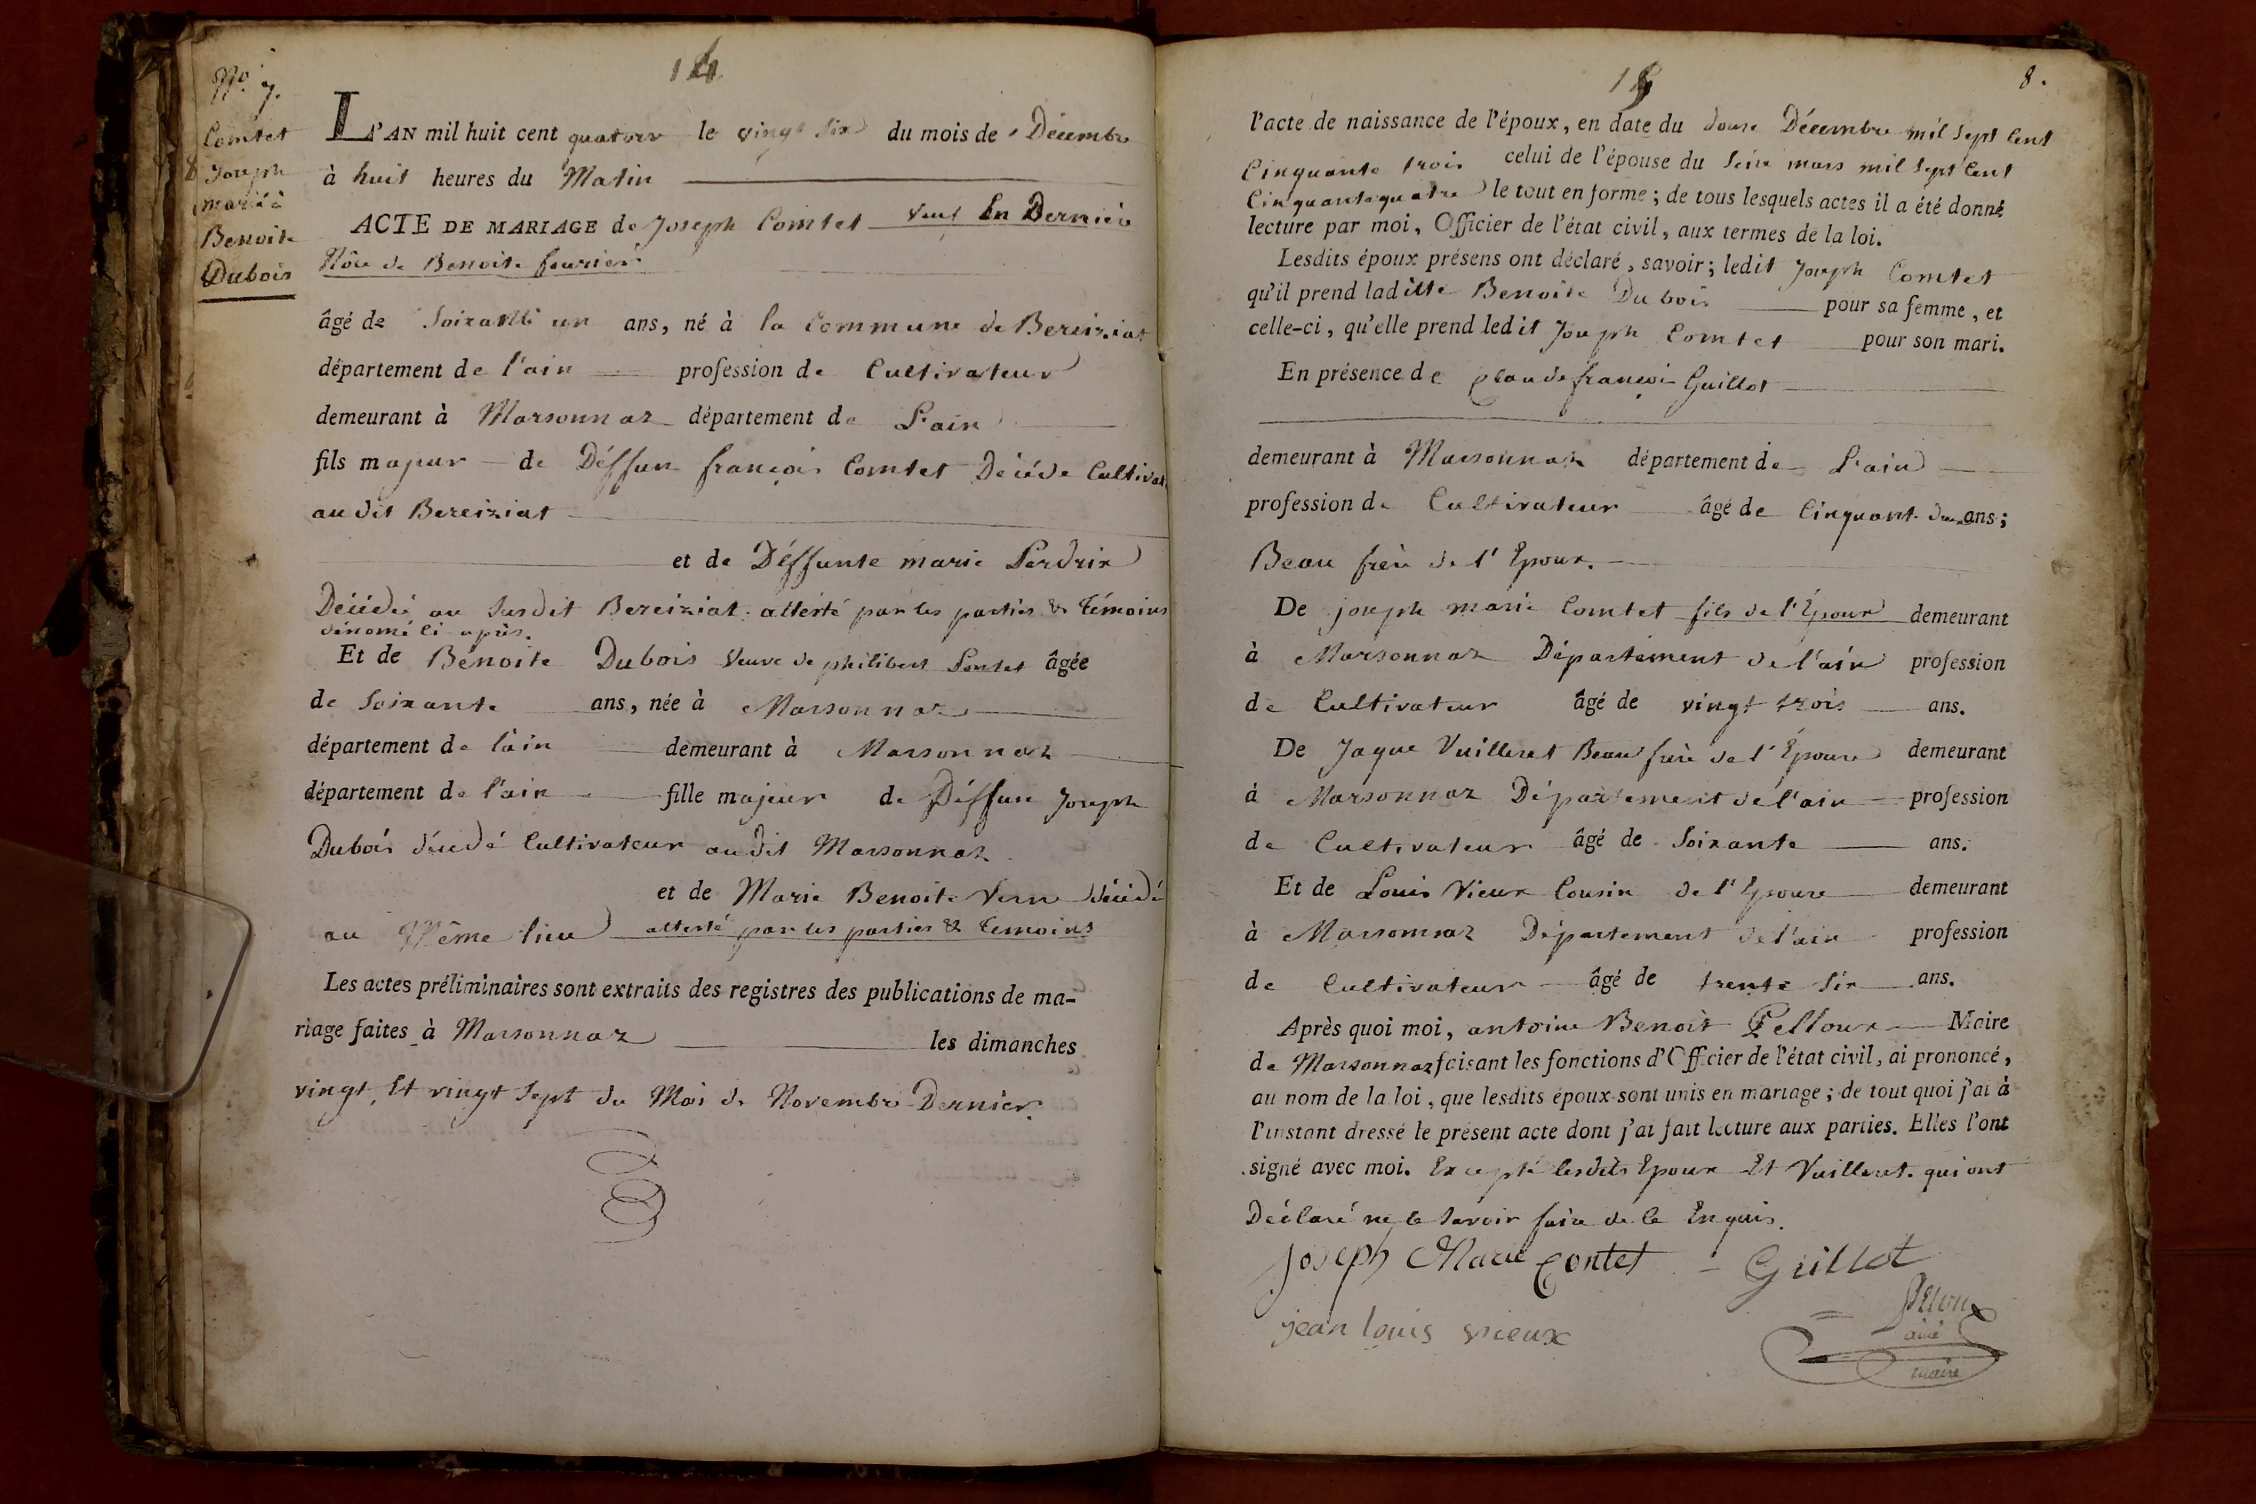 14
N.º 7.
Comtet
Joseph
marié à
Benoite
Dubois
L'AN mil huit cent quatorze le vingt Six du mois de Décembre
à huit heures du Matin
ACTE DE MARIAGE de Joseph Comtet Veuf En Dernière
Nôce de Benoite feurier
âgé de Soixante un ans, né à la Commune de Bereiziat
département de l'ain profession de Cultivateur
demeurant à Marsonnaz département de L'ain
fils majeur de Déffun françois Comtet Décédé Cultivat
au dit Bereiziat
et de Déffunte marie Perdrix
Décédé au Susdit Bereiziat. attesté par les parties & Témoins
dénomé ci après.
Et de Benoite Dubois Veuve de philibert Pontet âgée
de Soixante ans, née à Marsonnaz
département de l'ain demeurant à Marsonnaz
département de l'ain fille majeur de Déffun Joseph
Dubois décédé Cultivateur au dit Marsonnaz
et de Marie Benoite Vern décédé
au Même lieu attesté par les parties & Temoins
Les actes préliminaires sont extraits des registres des publications de ma-
riage faites à Marsonnaz les dimanches
vingt, Et vingt Sept du Mois de Novembre Dernier.
8.
l'acte de naissance de l'époux, en date du douze Décembre mil Sept Cent
Cinquante trois celui de l'épouse du Seize mars mil Sept Cent
Cinquante quatre le tout en forme; de tous lesquels actes il a été donné
lecture par moi, Officier de l'état civil, aux termes de la loi.
Lesdits époux présens ont déclaré, savoir; ledit Joseph Comtet
qu'il prend laditte Benoite Dubois pour sa femme, et
celle-ci, qu'elle prend ledit Joseph Comtet pour son mari.
En présence de Claude françois Guillot
demeurant à Marsonnaz département de L'ain
profession de Cultivateur âgé de Cinquante deux ans;
Beau frère de l'Epoux.
De joseph marie Comtet fils de l'Époux demeurant
à Marsonnaz Département de l'ain profession
de Cultivateur âgé de vingt trois ans.
De Jaque Vuilleret Beau frère de l'Épouse demeurant
à Marsonnaz Département de l'ain profession
de Cultivateur âgé de Soixante ans.
Et de Louis Vieux Cousin de l'Epouse demeurant
à Marsonnaz Département de l'ain profession
de Cultivateur âgé de trente Six ans.
Après quoi moi, antoine Benoit Pelloux Maire
de Marsonnaz faisant les fonctions d'Officier de l'état civil, ai prononcé,
au nom de la loi, que lesdits époux sont unis en mariage; de tout quoi j'ai à
l'instant dressé le présent acte dont j'ai fait lecture aux parties. Elles l'ont
signé avec moi. Excepté lesdits Epoux Et Vuilleret. qui ont
Déclaré ne le Savoir faire de ce Enquis.
Joseph Marie Contet Guillot
jean louis vieux
Pelloux
ainé
maire